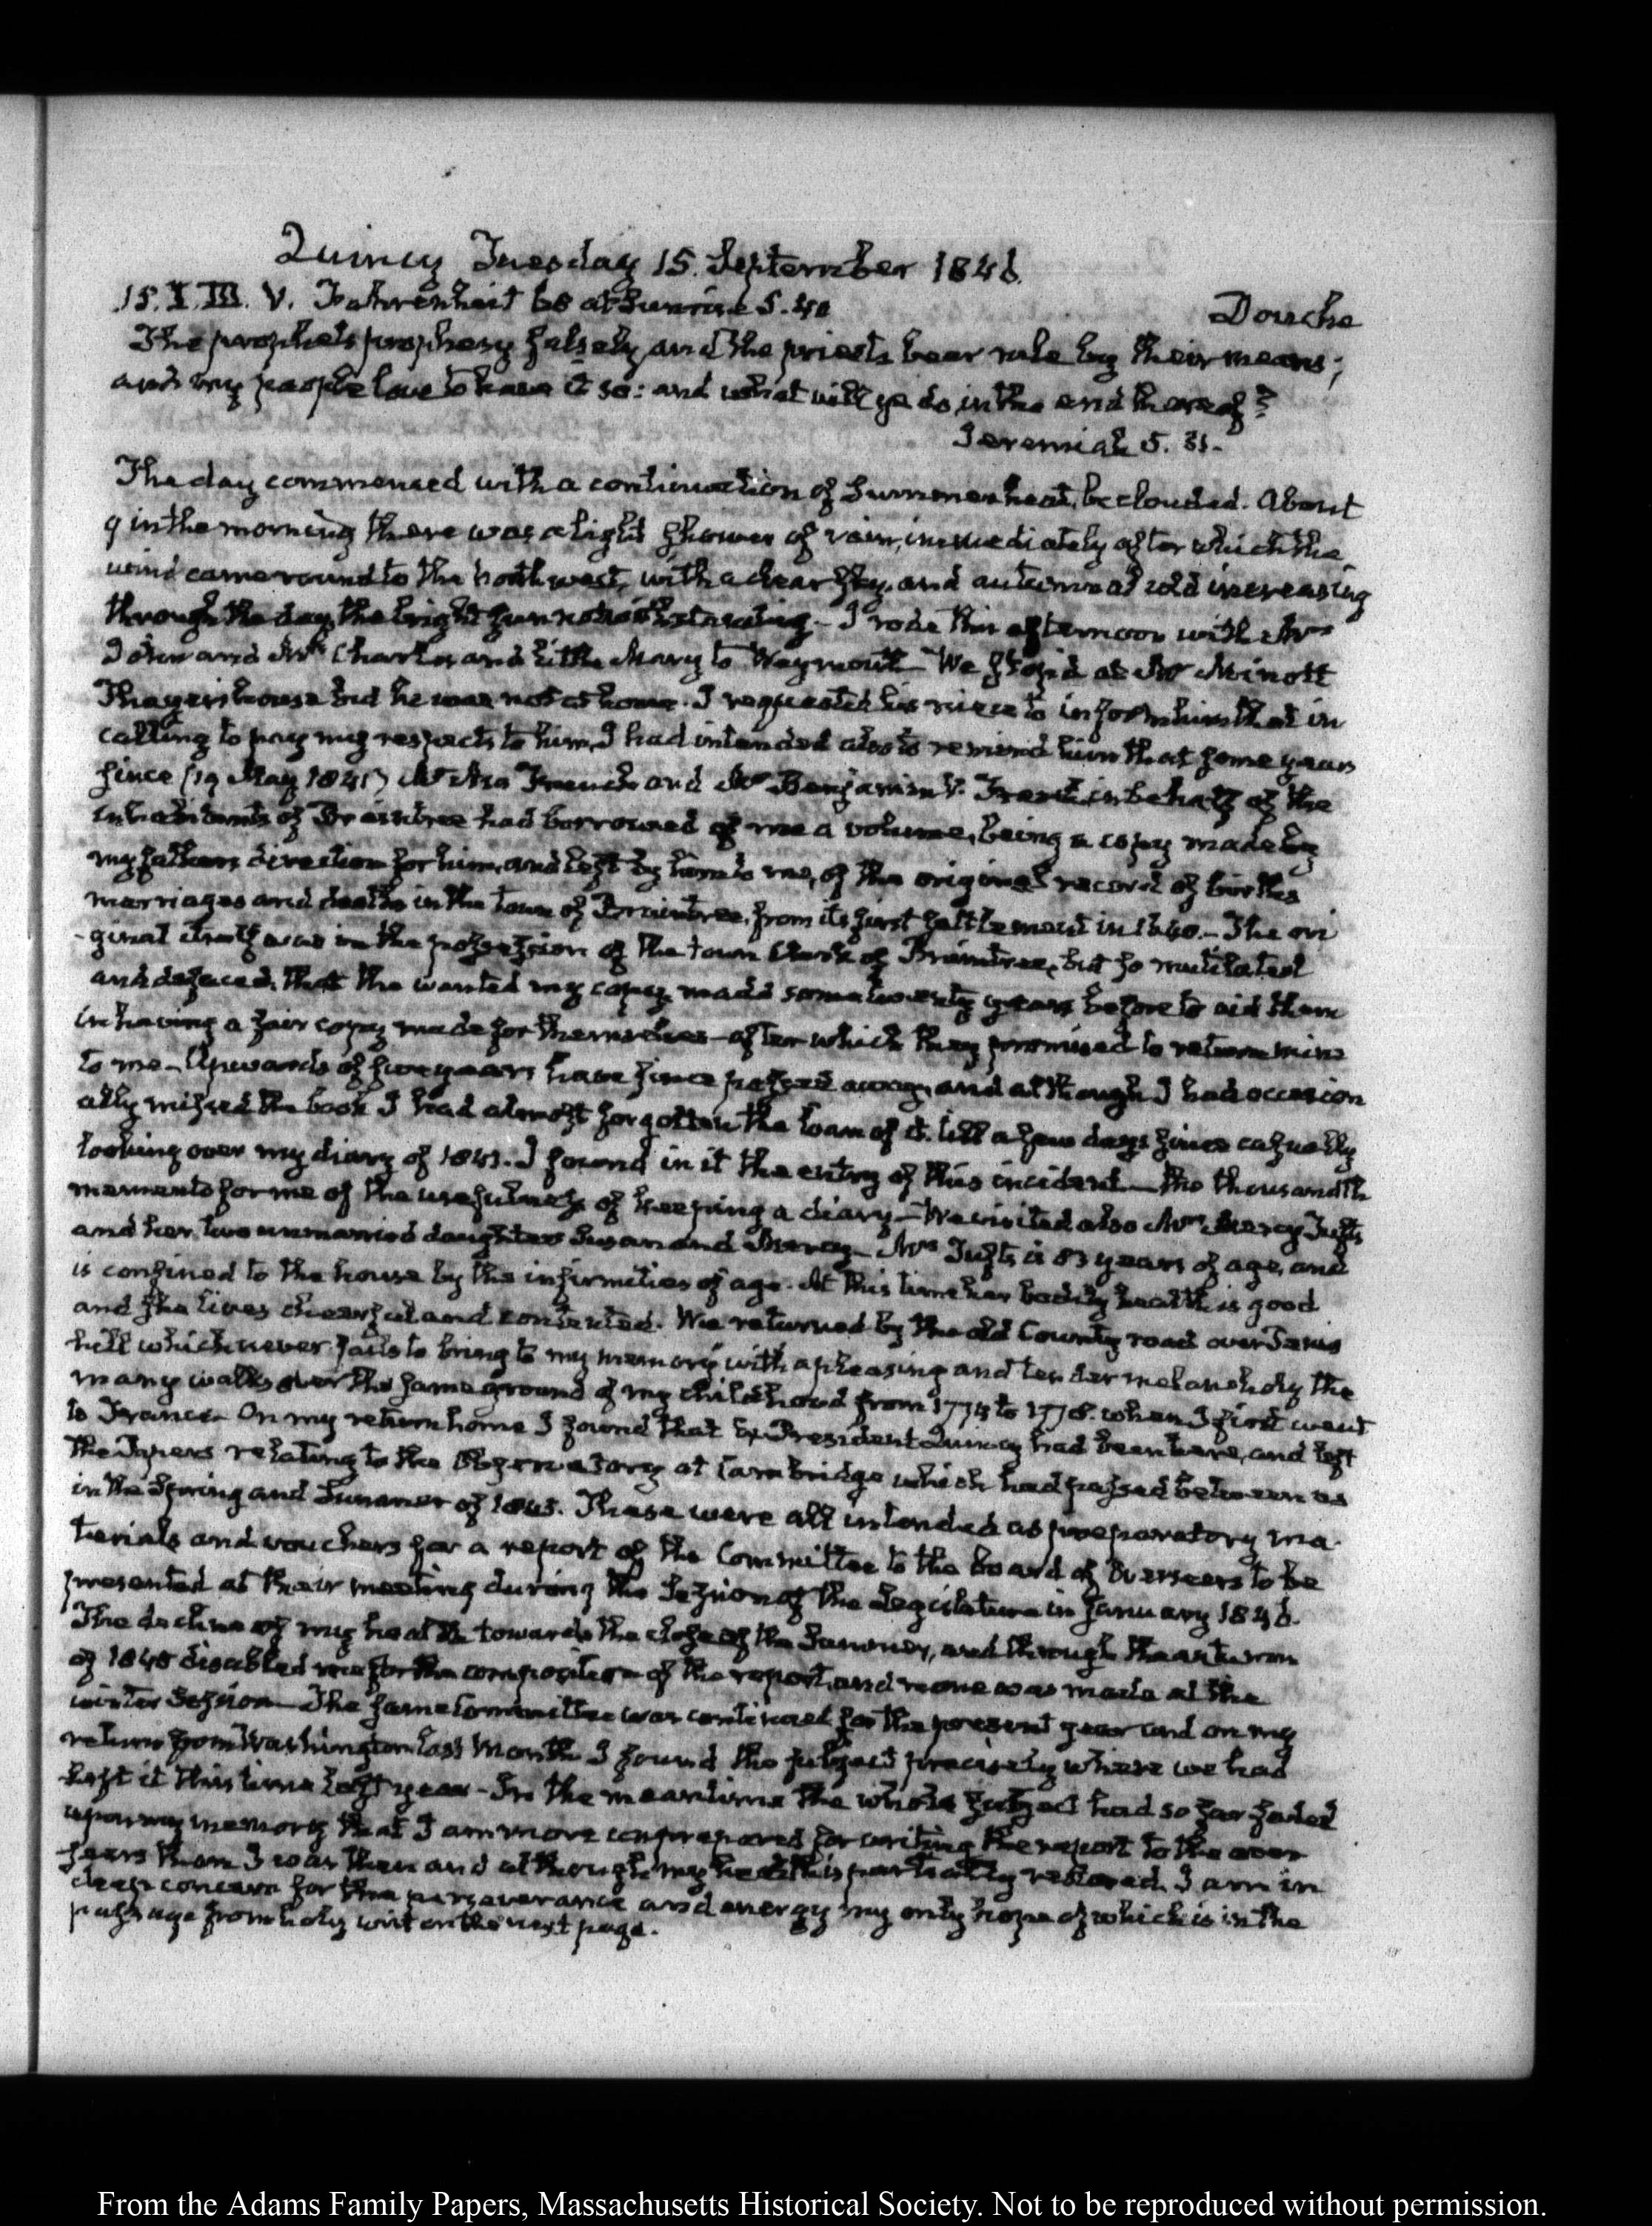 Quincy Tuesday 15. September 1846.
15. I. III. V. Fahrenheit 68 at Sunrise 5.40
Douche
The prophets prophesy falsely, and the priests bear rule by their means;
and my people love to have it so: and what will ye do in the end thereof?
Jeremiah 5. 31.
The day commenced with a continuation of Summer heat, beclouded. About
9 in the morning there was a light shower of rain, immediately after which the
wind came round to the north west, with a clear sky, and autumnal cold increasing
through the day, the bright sun notwithstanding — I rode this afternoon with Mrs
John and Mrs Charles and little Mary to Weymouth — We stop'd at Mr Minott
Thayer's house but he was not at home. I requested his niece to inform him that in
calling to pay my respects to him, I had intended also to remind him that some years
since (19 May 1841) Mr Asa French and Mr Benjamin V. French in behalf of the
inhabitants of Braintree had borrowed of me a volume, being a copy made by
my father's direction for him, and left by him to me, of the original record of births
marriages and deaths in the town of Braintree, from its first settlement in 1640. — The ori
-ginal itself was in the possession of the town Clerk of Braintree, but so mutilated
and defaced, that the wanted my copy, made some twenty years before to aid them
in having a fair copy made for themselves — after which they promised to return mine
to me — Upwards of five years have since passed away, and although I had occasion
ally missed the book I had almost forgotten the loan of it. till a few days since casually
looking over my diary of 1841. I found in it the entry of this incident — the thousandth
memento for me of the usefulness of keeping a diary — We visited also Mrs Mercy Tufts
and her two unmarried daughters Susan and Mercy — Mrs Tufts is 83 years of age, and
is confined to the house by the infirmities of age. At this time her bodily health is good
and she lives cheerful and contented. We returned by the old County road over Penns
hill which never fails to bring to my memory with a pleasing and tender melancholy the
many walks over the same ground of my childhood from 1774 to 1778. when I first went
to France — On my return home I found that Ex President Quincy had been here, and left
the Papers relating to the Observatory at Cambridge which had passed between us
in the Spring and Summer of 1845. These were all intended as preparatory ma-
terials and vouchers for a report of the Committee to the board of Overseers to be
presented at their meeting during the Session of the Legislature in January 1846.
The decline of my health towards the close of the Summer, and through the autumn
of 1845 disabled me for the composition of the report, and none was made at the
winter Session — The same Committee was continued for the present year and on my
return from Washington last Month I found the subject precisely where we had
left it this time last year — In the meantime the whole subject had so far faded
upon my memory that I am more unprepared for writing the report to the over
seers than I was then and although my health is partially restored I am in
deep concern for the perseverance and energy my only hope of which is in the
passage from holy writ on the next page.
From the Adams Family Papers, Massachusetts Historical Society. Not to be reproduced without permission.